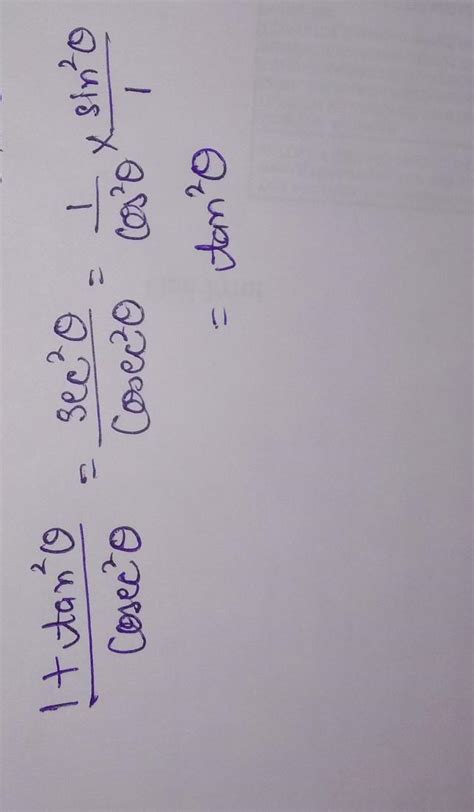 1 + tan²θ / cosec²θ = sec²θ / cosec²θ = 1 / cos²θ × sin²θ / 1
= tan²θ